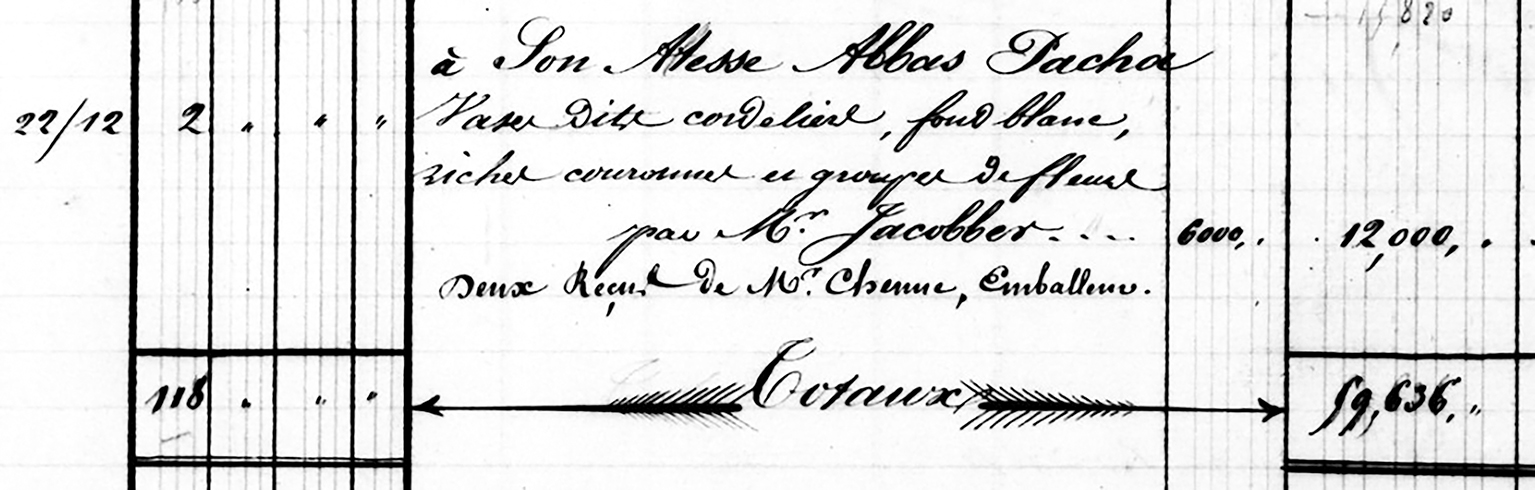 15,820
à Son Altesse Abbas Pacha
22/12 2 " " " Vases dits cordelière, fond blanc,
riches couronnes et groupes de fleurs
par Mr. Jacobber.... 6000,. 12,000,.
Deux Reçus de Mr. Chenue, Emballeur.
118 " " " Totaux 59,636,"